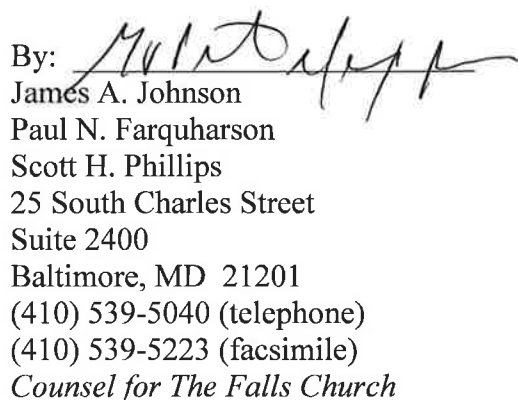 By:
James A. Johnson
Paul N. Farquharson
Scott H. Phillips
25 South Charles Street
Suite 2400
Baltimore, MD 21201
(410) 539-5040 (telephone)
(410) 539-5223 (facsimile)
Counsel for The Falls Church